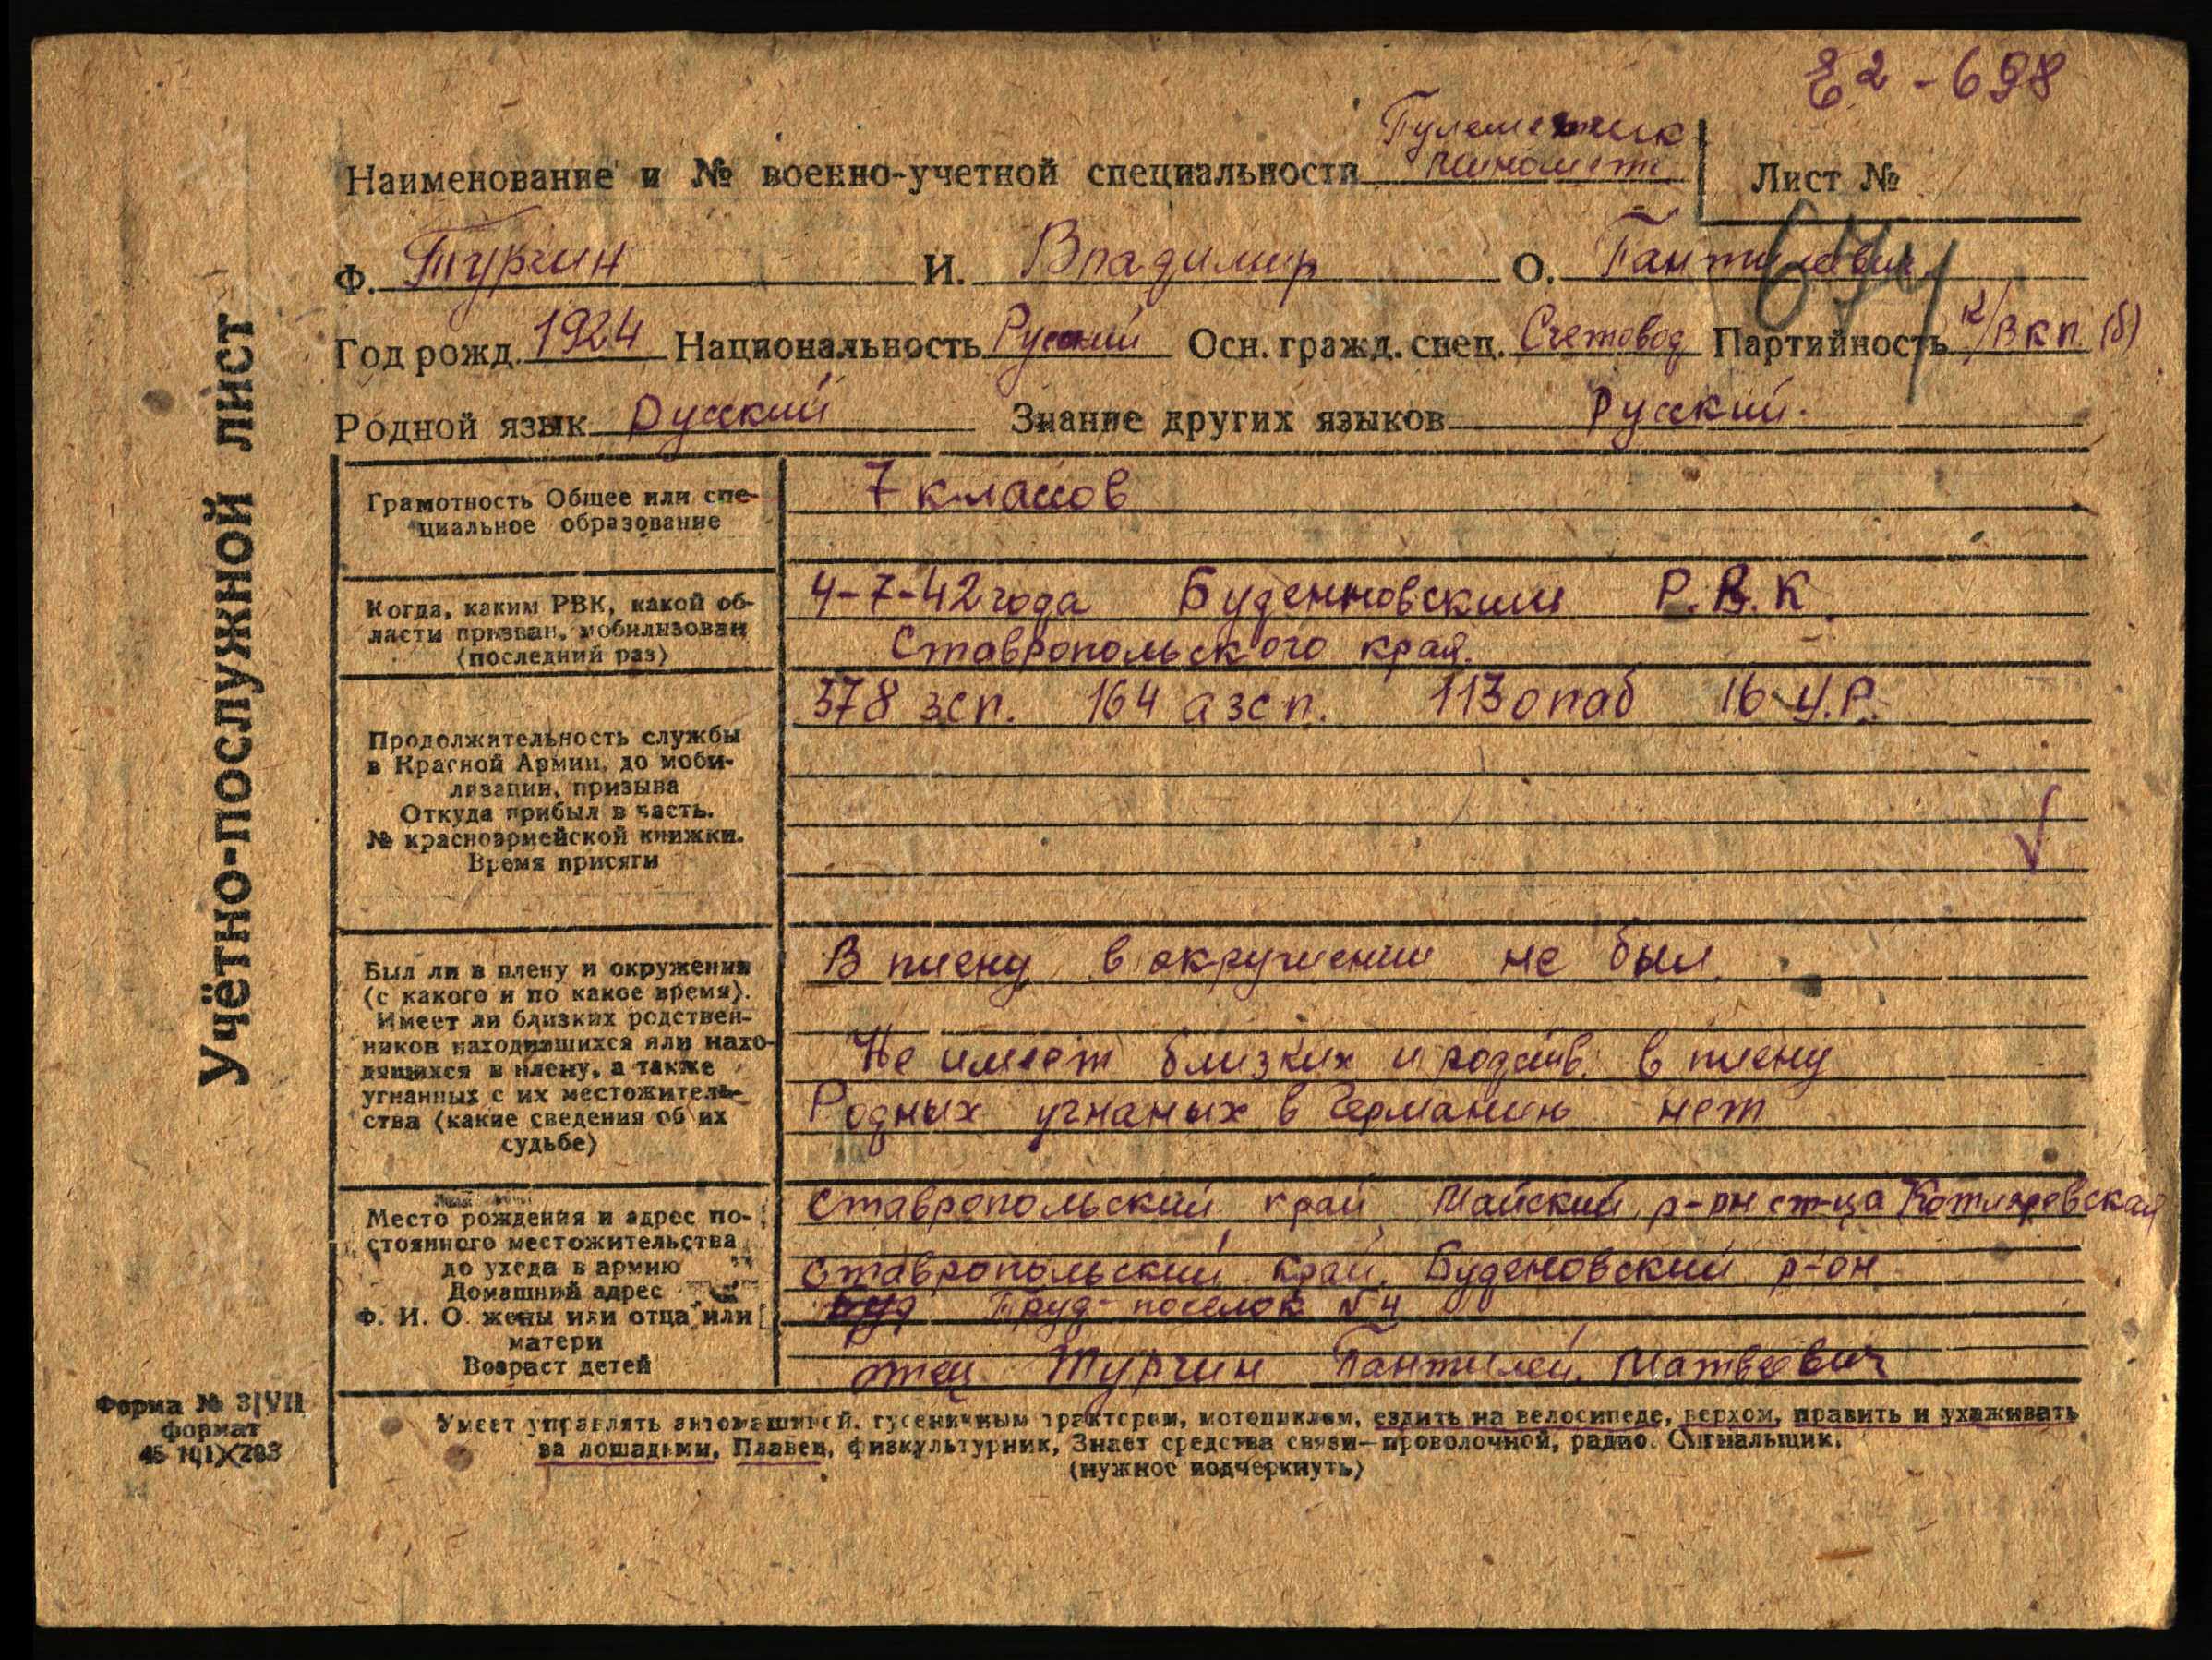 Е2-698
Пулеметчик
Наименование и № военно-учетной специальности миномет Лист №
674
Ф. Тургин И. Владимир О. Пантилевич
Год рожд. 1924 Национальность Русский Осн. гражд. спец. Счетовод Партийность к/ВКП(б)
Родной язык Русский Знание других языков Русский.
Учётно-послужной лист
Грамотность Общее или специальное образование
7 классов
Когда, каким РВК, какой об-
ласти призван, мобилизован
(последний раз)
4-7-42 года Буденновским Р.В.К
Ставропольского края.
Продолжительность службы
в Красной Армии, до моби-
лизации, призыва
Откуда прибыл в часть.
№ красноармейской книжки.
Время присяги
378 зсп. 164 азсп. 113 опаб 16 У.Р.
Был ли в плену и окружении
(с какого и по какое время).
Имеет ли близких родствен-
ников находившихся или нахо-
дящихся в плену, а также
угнанных с их местожитель-
ства (какие сведения об их
судьбе)
В плену в окружении не был
Не имеет близких и родств. в плену
Родных угнаных в Германию нет
Место рождения и адрес по-
стоянного местожительства
до ухода в армию
Домашний адрес
Ф. И. О. жены или отца или
матери
Возраст детей
Ставропольский край Майский р-он ст-ца Котляревская
Ставропольский край, Буденовский р-он
Труд-поселок №4
отец Тургин Пантилей Матвеевич
Форма № 3/VII
формат
Умеет управлять автомашиной, гусеничным трактором, мотоциклом, ездить на велосипеде, верхом, править и ухаживать
за лошадьми, Плавец, физкультурник, Знает средства связи—проволочной, радио. Сигнальщик.
(нужное подчеркнуть)